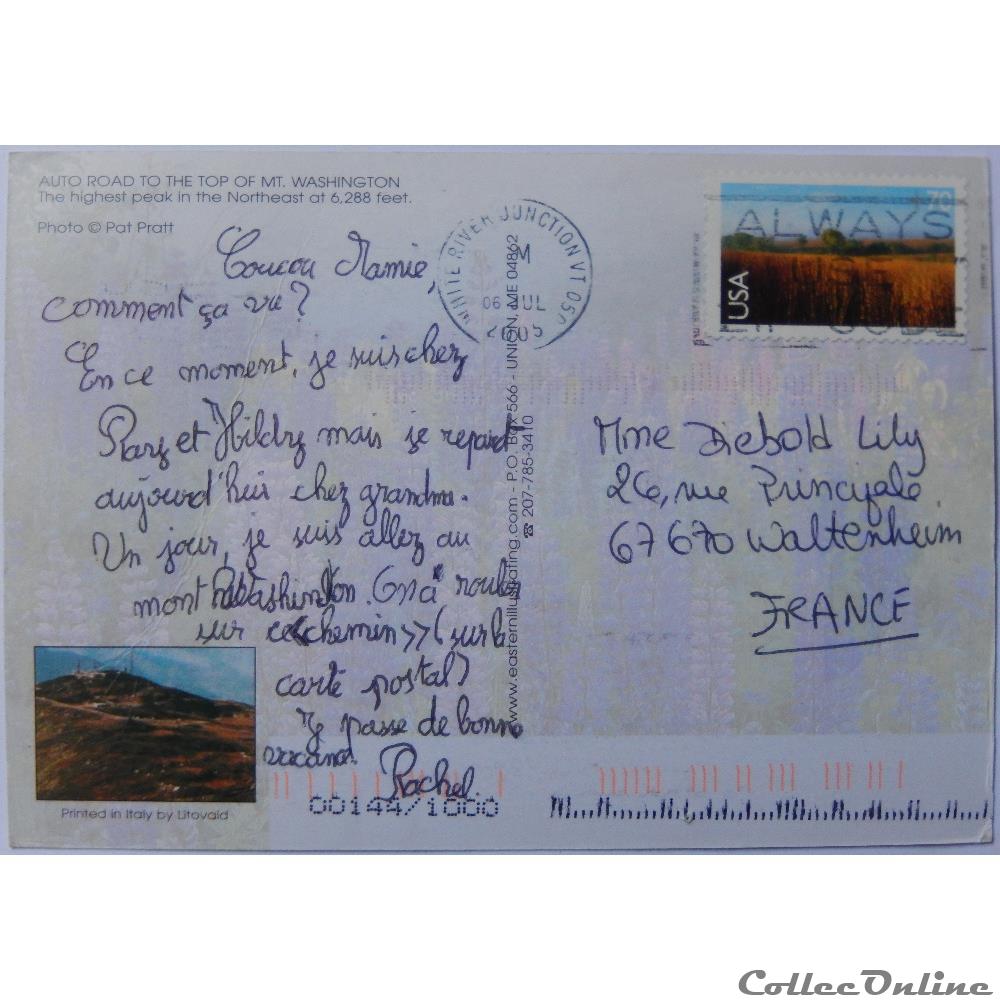 AUTO ROAD TO THE TOP OF MT. WASHINGTON
The highest peak in the Northeast at 6,288 feet.
Photo © Pat Pratt
Coucou Mamie,
comment ça va?
En ce moment, je suis chez
et Hildry mais je repart
aujourd'hui chez grandma.
Un jour, je suis allez au
mont Washington. On a rouler
sur ce <<chemin>> (sur la
carte postal)
Je passe de bonne
vacance.
Rachel.
Printed in Italy by Litovald
00144/1000
www.easternillustrating.com - P.O. Box 566 - UNION, ME 04862
☎ 207-785-3410
WHITE RIVER JUNCTION VT 050
M
06 JUL
2005
ALWAYS
USE
ZIP CODE
70
USA
Mme Diebold Lily
26, rue Principale
67670 Waltenheim
FRANCE
CollecOnline